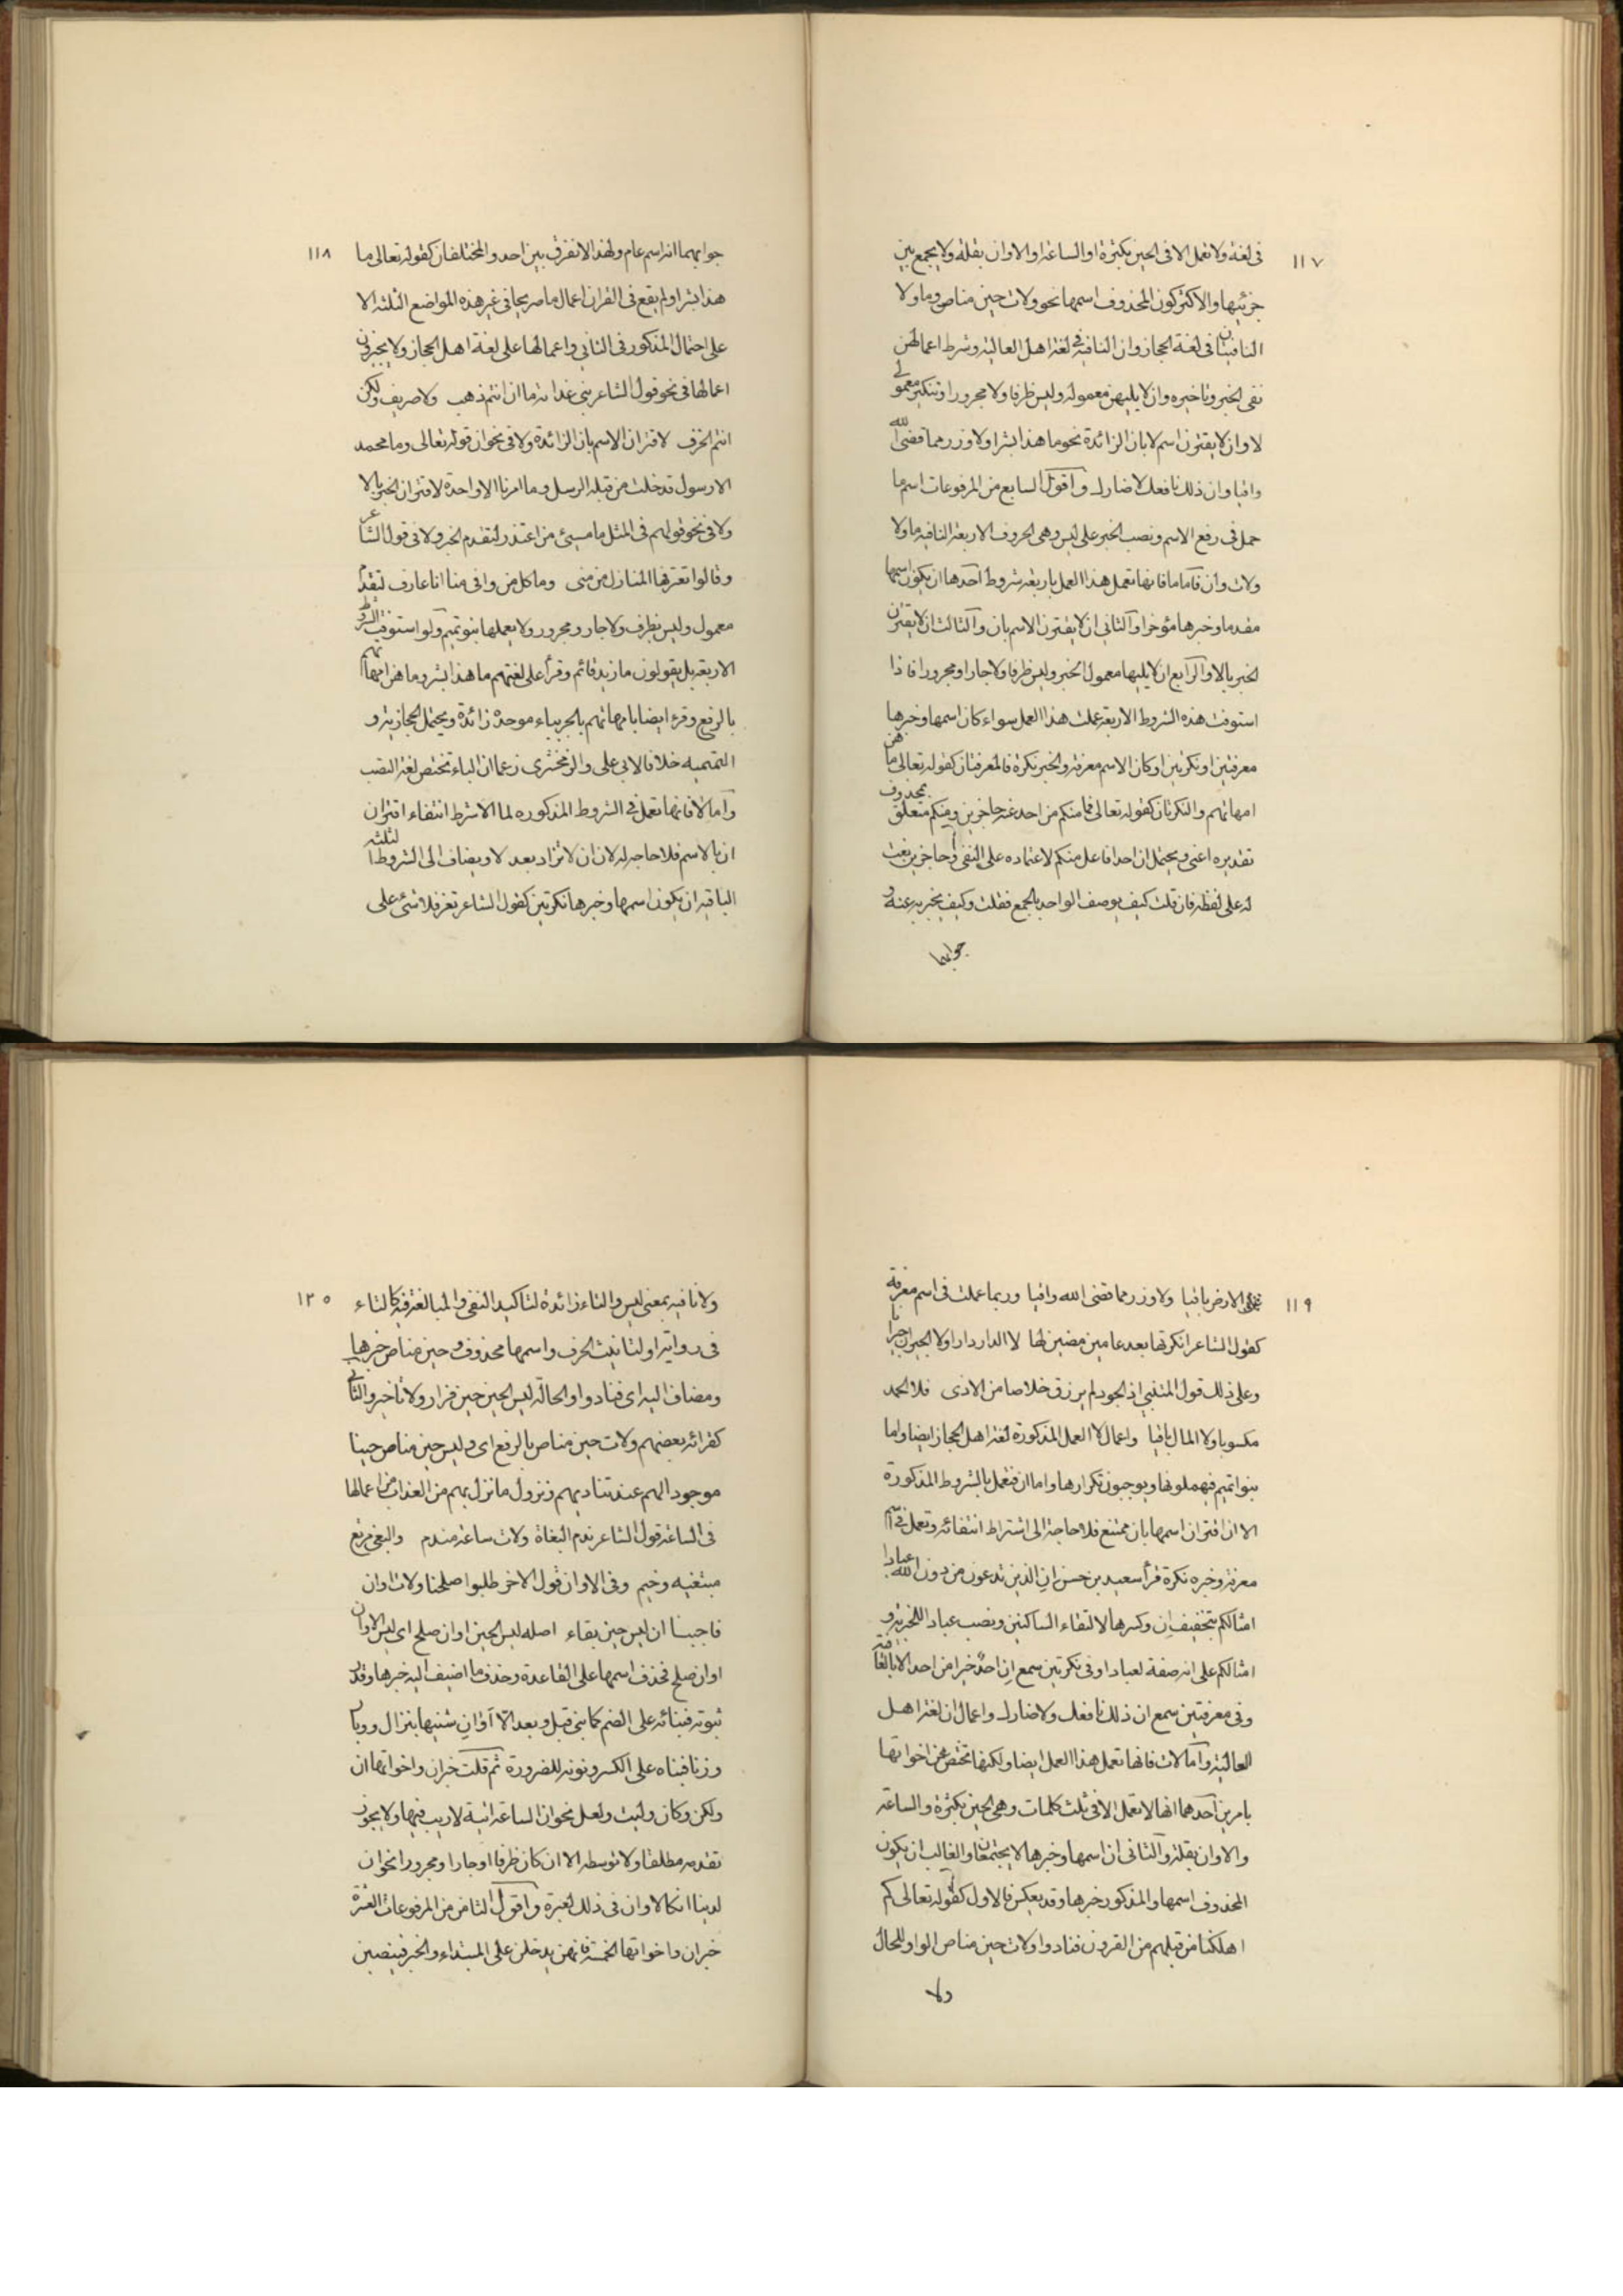 ١١٧
فى لغة ولا تعمل الا فى الحين بكثرة او الساعة او الاوان بقلة ولا يجمع بين
جزئيها والاكثر كون المحذوف اسمها نحو ولات حين مناص وما ولا
النافيتان فى لغة الحجاز وان النافية فى لغة اهل العالية وشرط اعمالهن
نفى الخبر وتاخيره وان لا يليهن معموله وليس ظرفا ولا مجرورا وتنكير معمولى
لا وان لا يقترن اسم لا بان الزائدة نحو ما هذا بشرا ولا وزر مما قضى الله
واقيا وان ذلك نافعك ولا ضارك واقول السابع من المرفوعات اسم ما
حمل فى رفع الاسم ونصب الخبر على ليس وهى الحروف الاربعة النافية ما ولا
ولات وان فاما ما فانها تعمل هذا العمل باربعة شروط احدها ان يكون اسمها
مقدما وخبرها مؤخرا والثانى ان لا يقترن الاسم بان والثالث ان لا يقترن
الخبر بالا والرابع ان لا يليها معمول الخبر وليس ظرفا ولا جارا ومجرورا فاذا
استوفت هذه الشروط الاربعة عملت هذا العمل سواء كان اسمها وخبرها
معرفتين او نكرتين او كان الاسم معرفة والخبر نكرة فالمعرفتان كقوله تعالى ما هن
امهاتهم والنكرتان كقوله تعالى فما منكم من احد عنه حاجزين ومنكم متعلق بمحذوف
تقديره اعنى ويحتمل ان احدا فاعل منكم لاعتماده على النفى وحاجزين نعت
له على لفظه فان قلت كيف يوصف الواحد بالجمع فقلت وكيف يخبر به عنه و
جوابهما
١١٨
جوابهما انه اسم عام ولهذا لا نفرق بين احد والمختلفان كقوله تعالى ما
هذا بشرا ولم يقع فى القران اعمال ما صريحا فى غير هذه المواضع الثلثة الا
على احتمال المذكور فى الثانى واعمالها على لغة اهل الحجاز ولا يجيزون
اعمالها فى نحو قول الشاعر بنى غدانة ما ان انتم ذهب ولا صريف ولكن
انتم الخزف لاقتران الاسم بان الزائدة ولا فى نحو ان قوله تعالى وما محمد
الا رسول قد خلت من قبله الرسل وما امرنا الا واحدة لاقتران الخبر بالا
ولا فى نحو قولهم فى المثل ما مسيئ من اعتذر لتقدم الخبر ولا فى قول الشاعر
وقالوا تعرفها المنازل من منى وما كل من وافى منا انا عارف لتقدم
معمول وليس بظرف ولا جار ومجرور ولا يعملها بنو تميم ولو استوفت الشروط
الاربعة بل يقولون ما زيد قائم وقرأ على لغتهم ما هذا بشر وما هن امهاتهم
بالرفع وقرء ايضا بامهاتهم بالجر بباء موحدة زائدة ويحتمل الحجازية و
التميميه خلافا لابى على والزمخشرى زعما ان الباء تختص لغة النصب
واما لا فانها تعمل فى الشروط المذكوره لما الا شرط انتفاء اقتران
ان بالاسم فلا حاجه له لان ان لا تزاد بعد لا ويضاف الى الشروط الثلثه
الباقية ان يكون اسمها وخبرها نكرتين كقول الشاعر تعز فلا شئ على
١١٩
على الارض باقيا ولا وزر مما قضى الله واقيا وربما عملت فى اسم معرفة
كقول الشاعر انكرتها بعد عامين مضين لها لا الدار دارا ولا الجيران جيرانا
وعلى ذلك قول المتنبى اذ الجود لم يرزق خلاصا من الاذى فلا الحمد
مكسوبا ولا المال باقيا واعمال لا العمل المذكورة لغة اهل الحجاز ايضا واما
بنوا تميم فيهملونها ويوجبون تكرارها واما ان فتعمل بالشروط المذكورة
الا ان اقتران اسمها بان ممتنع فلا حاجة الى اشتراط انتفائه وتعمل فى اسم
معرفة وخبره نكرة قرأ سعيد بن حسن ان الذين تدعون من دون الله عبادا
امثالكم بتخفيف ان وكسرها لالتقاء الساكنين ونصب عبادا للخبرية و
امثالكم على انه صفة لعبادا وفى نكرتين سمع ان احد خيرا من احد الا بالعافية
وفى معرفتين سمع ان ذلك نافعك ولا ضارك واعمال ان لغة اهل
العالية واما لات فانها تعمل هذا العمل ايضا ولكنها تختص عن اخواتها
بامرين احدهما انها لا تعمل الا فى ثلث كلمات وهى الحين بكثرة والساعة
والاوان بقلة والثانى ان اسمها وخبرها لا يجتمعان والغالب ان يكون
المحذوف اسمها والمذكور خبرها وقد يعكس فالاول كقوله تعالى كم
اهلكنا من قبلهم من القرون فنادوا ولات حين مناص الواو للحال
ولا
١٢٥
ولا نافية بمعنى ليس والتاء زائدة لتاكيد النفى والمبالغة فيه كالتاء
فى رواية او لتانيث الحرف واسمها محذوف وحين مناص خبرها
ومضاف اليه اى فنادوا والحالة ليس الحين حين فرار ولا تأخير والثانى
كقرائة بعضهم ولات حين مناص بالرفع اى وليس حين مناص حينا
موجودا لهم عند تناديهم ونزول ما نزل بهم من العذاب من اعمالها
فى الساعة قول الشاعر ندم البغاة ولات ساعة مندم والبغى مرتع
مبتغيه وخيم وفى الاوان قول الاخر طلبوا صلحنا ولات اوان
فاجبنا ان ليس حين بقاء اصله ليس الحين اوان صلح اى ليس الاوان
اوان صلح فحذف اسمها على القاعدة وحذف ما اضيف اليه خبرها وقدر
ثبوته فبنائه على الضم كما بنى قبل وبعد الا اوان شبيها بنزال ووبار
وزنا فبناه على الكسر ونونه للضرورة ثم قلت خبر ان واخواتها ان
ولكن وكان وليت ولعل نحو ان الساعة اتية لا ريب فيها ولا يجوز
تقدمه مطلقا ولا توسطه الا ان كان ظرفا او جارا ومجرورا نحو ان
لدينا انكالا وان فى ذلك لعبرة واقول الثامن من المرفوعات العشرة
خبر ان واخواتها الخمسة فانهن يدخلن على المبتداء والخبر فينصبن